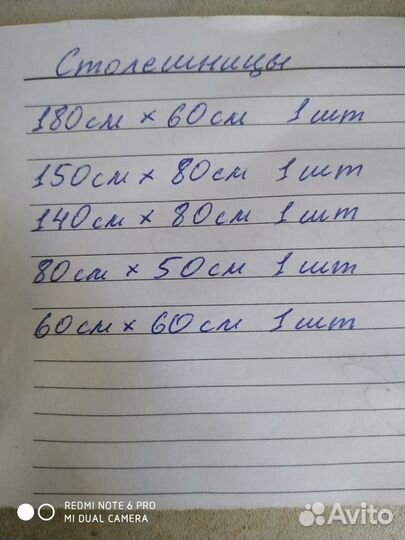 Столешницы
180см × 60см 1шт
150см × 80см 1шт
140см × 80см 1шт
80см × 50см 1шт
60см × 60см 1шт
REDMI NOTE 6 PRO
MI DUAL CAMERA
Avito